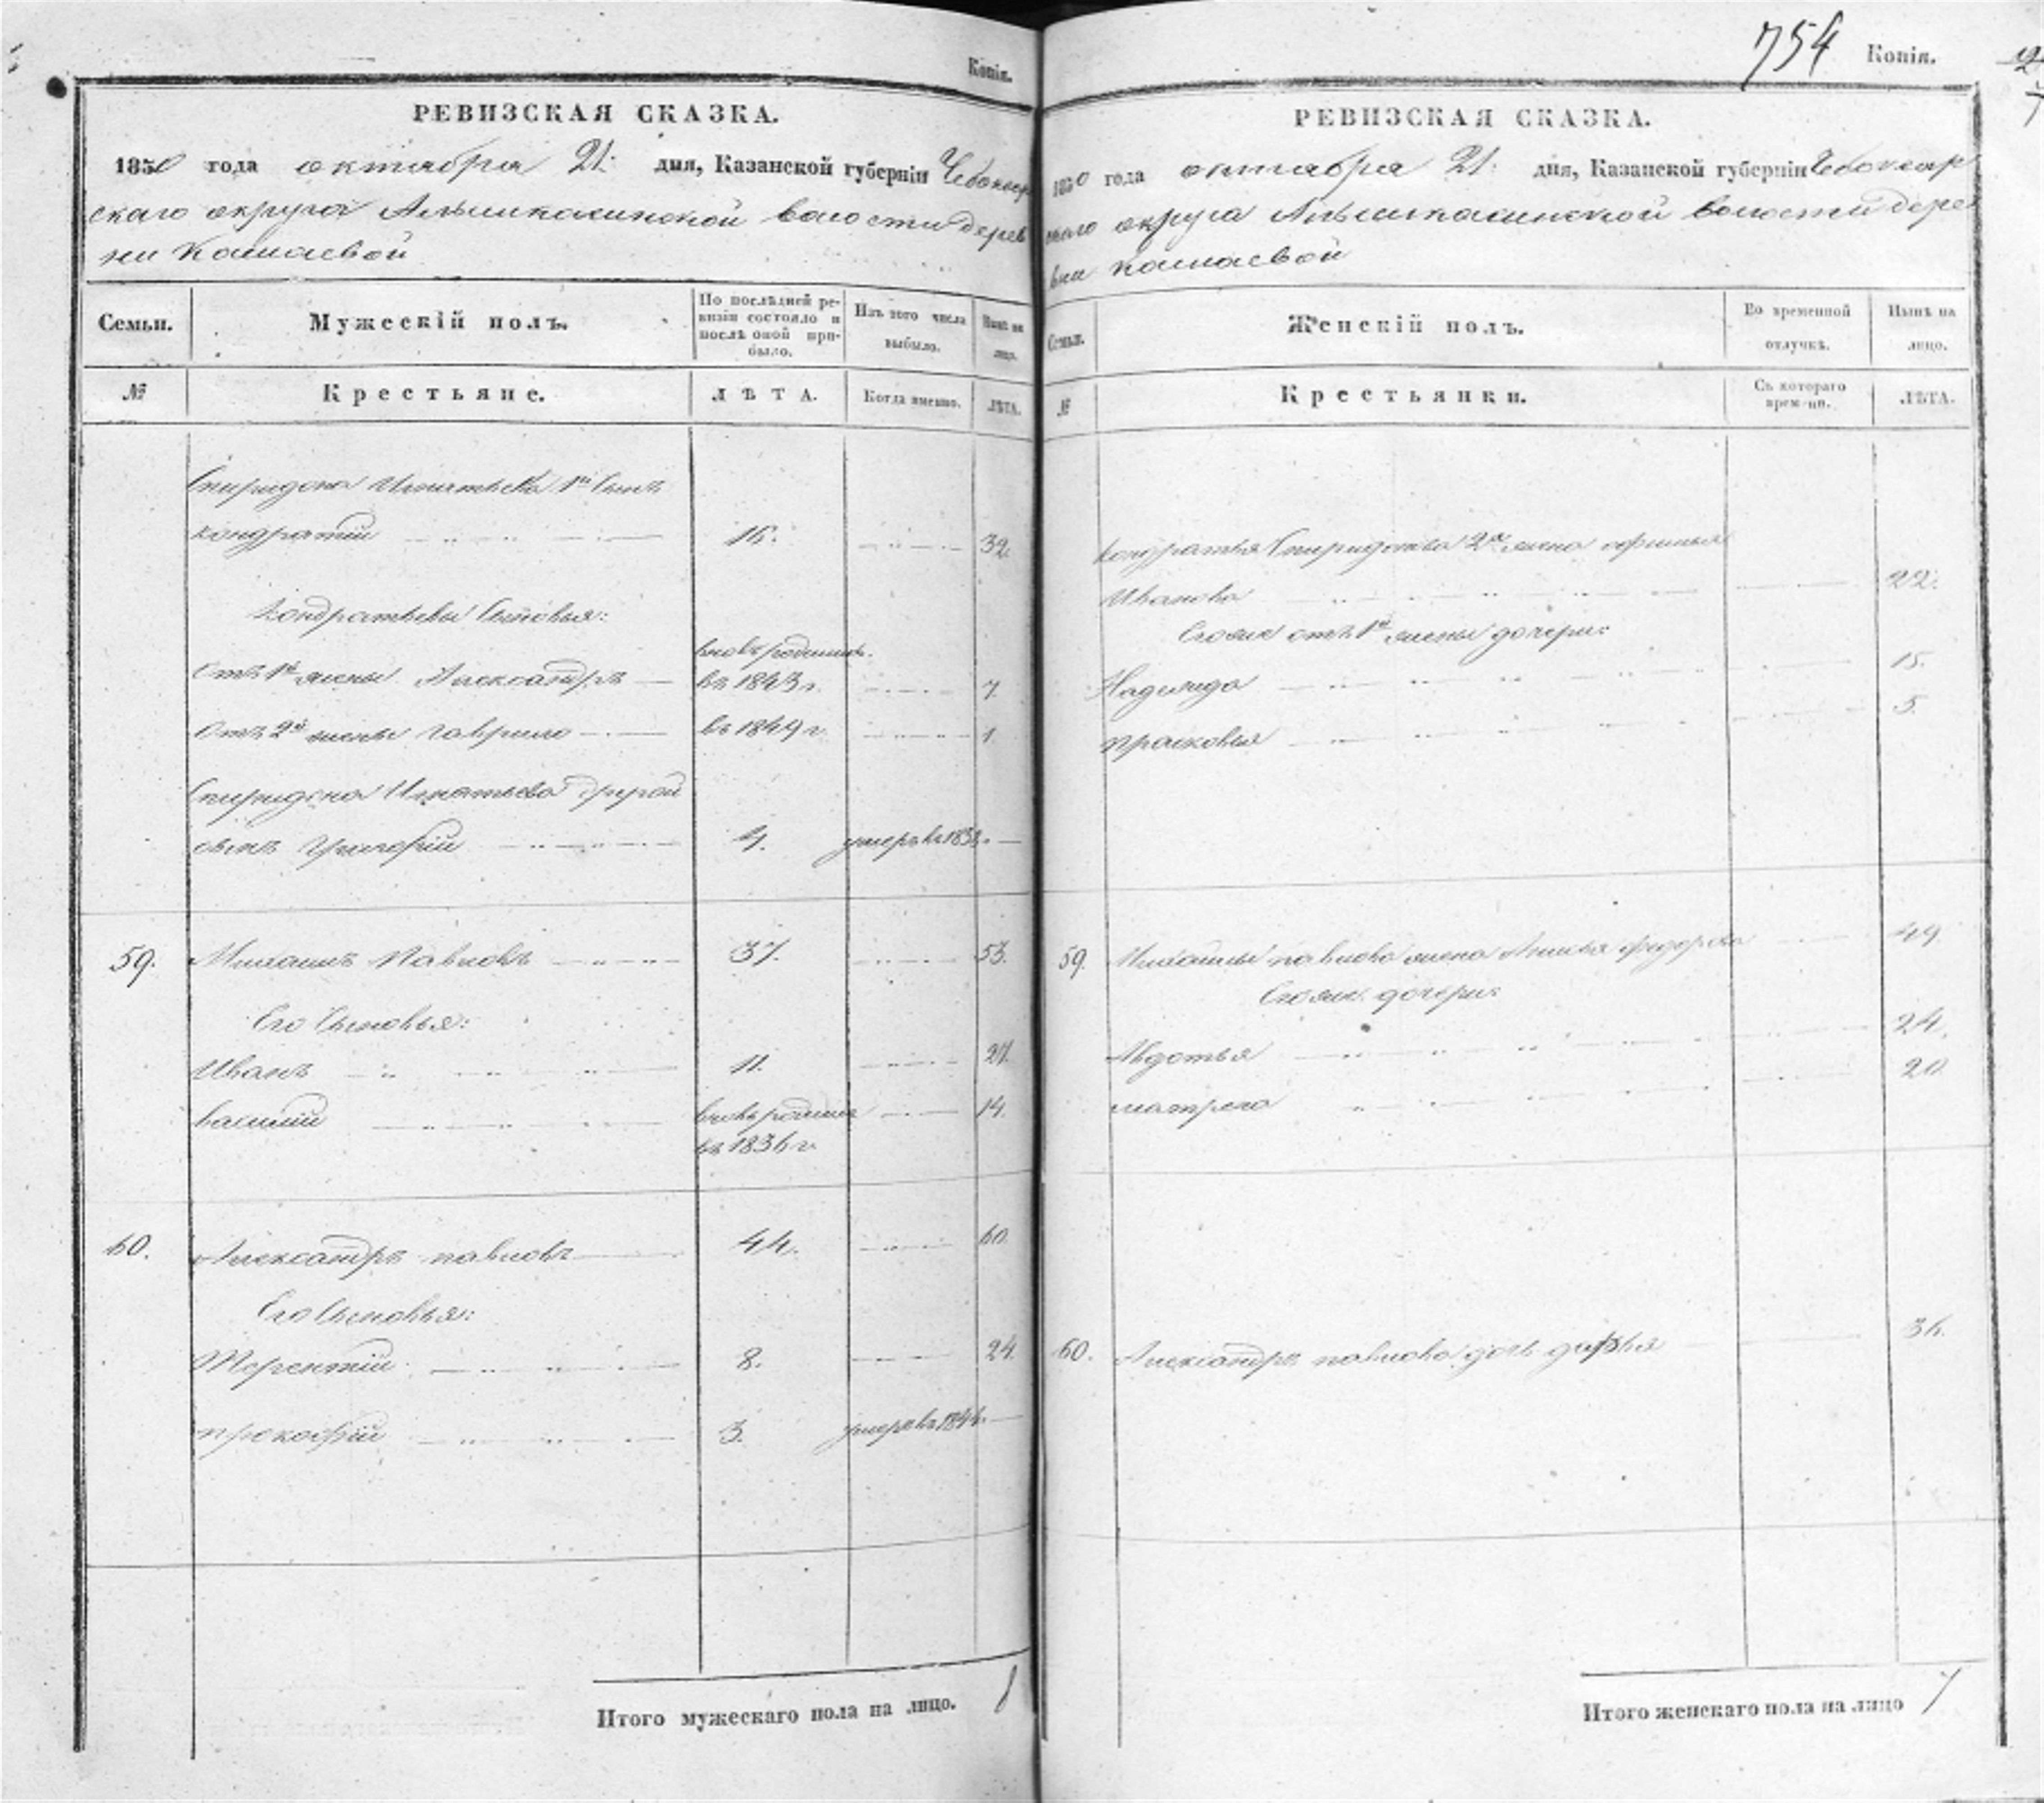 Копія.
РЕВИЗСКАЯ СКАЗКА.
1850 года октября 21 дня, Казанской губерніи Чебоксар
скаго округа Альшикасинской волости дерев
ни Кошаевой
Семьи.
Мужескій полъ.
По послѣдней ре-
визіи состояло и
послѣ оной при-
было.
Изъ того числа
выбыло.
Нынѣ на
лицо.
№
Крестьяне.
ЛѢТА.
Когда именно.
ЛѢТА.
Спиридона Игнатьева 1й Сынъ
Кондратій 16. 32.
Кондратьевы Сыновья:
вновь рожденъ
Отъ 1й жены Александръ въ 1843 г. 7.
Отъ 2й жены Гаврило въ 1849 г. 1
Спиридона Игнатьева другой
сынъ Григорій 4. умеръ въ
59. Михаилъ Павловъ 37. 53.
Его Сыновья:
Иванъ 11. 27.
Василій вновь рожденъ 14.
въ 1836 г.
60. Александръ Павловъ 44. 60.
Его Сыновья:
Терентій 8. 24.
Прокофій 3. умеръ въ
Итого мужескаго пола на лицо. 8
754 Копія.
РЕВИЗСКАЯ СКАЗКА.
1850 года октября 21 дня, Казанской губерніи Чебоксар
скаго округа Альшикасинской волости дере
вни Кошаевой
Семьи.
Женскій полъ.
Во временной
отлучкѣ.
Нынѣ на
лицо.
№
Крестьянки.
Съ котораго
времени.
ЛѢТА.
Кондратья Спиридонова 2я жена Офимья
Иванова 22.
Его же отъ 1й жены дочери:
Надежда 15.
Прасковья 5.
59. Михайлы Павлова жена Федорова 49.
Его же дочери:
Авдотья 24.
Матрена 20.
60. Александра Павлова дочь Дарья 36.
Итого женскаго пола на лицо 7